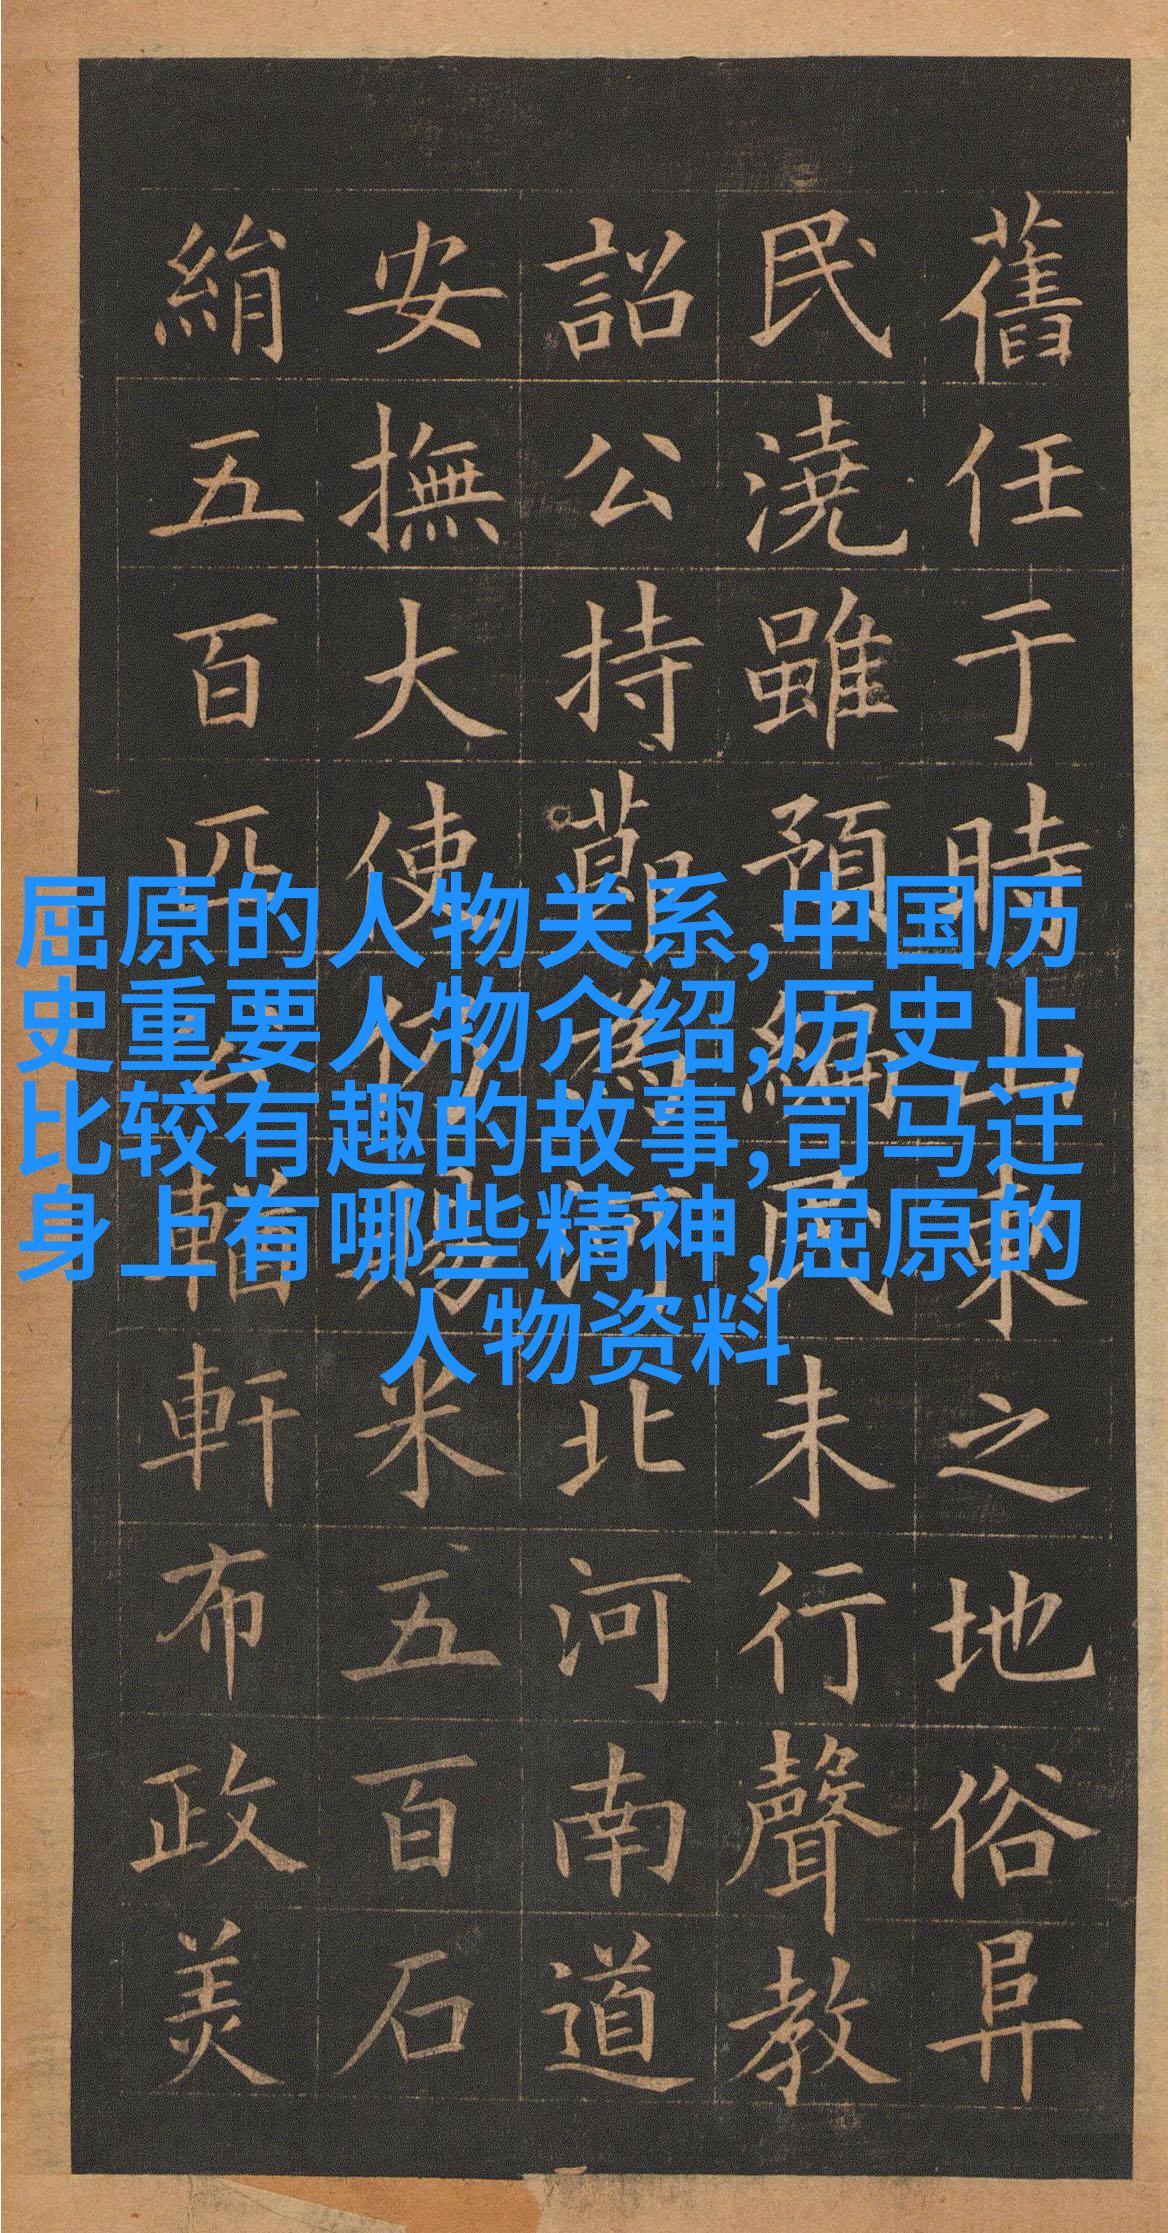 屈原的人物关系,中国历
史重要人物介绍,历史上
比较有趣的故事,司马迁
身上有哪些精神,屈原的
人物资料
舊任于時山東之地俗阜
民澆雖預編民未行聲教
詔公持節為河北河南道
安撫大使仍賜米五百石
絹五百匹公輶軒布政美